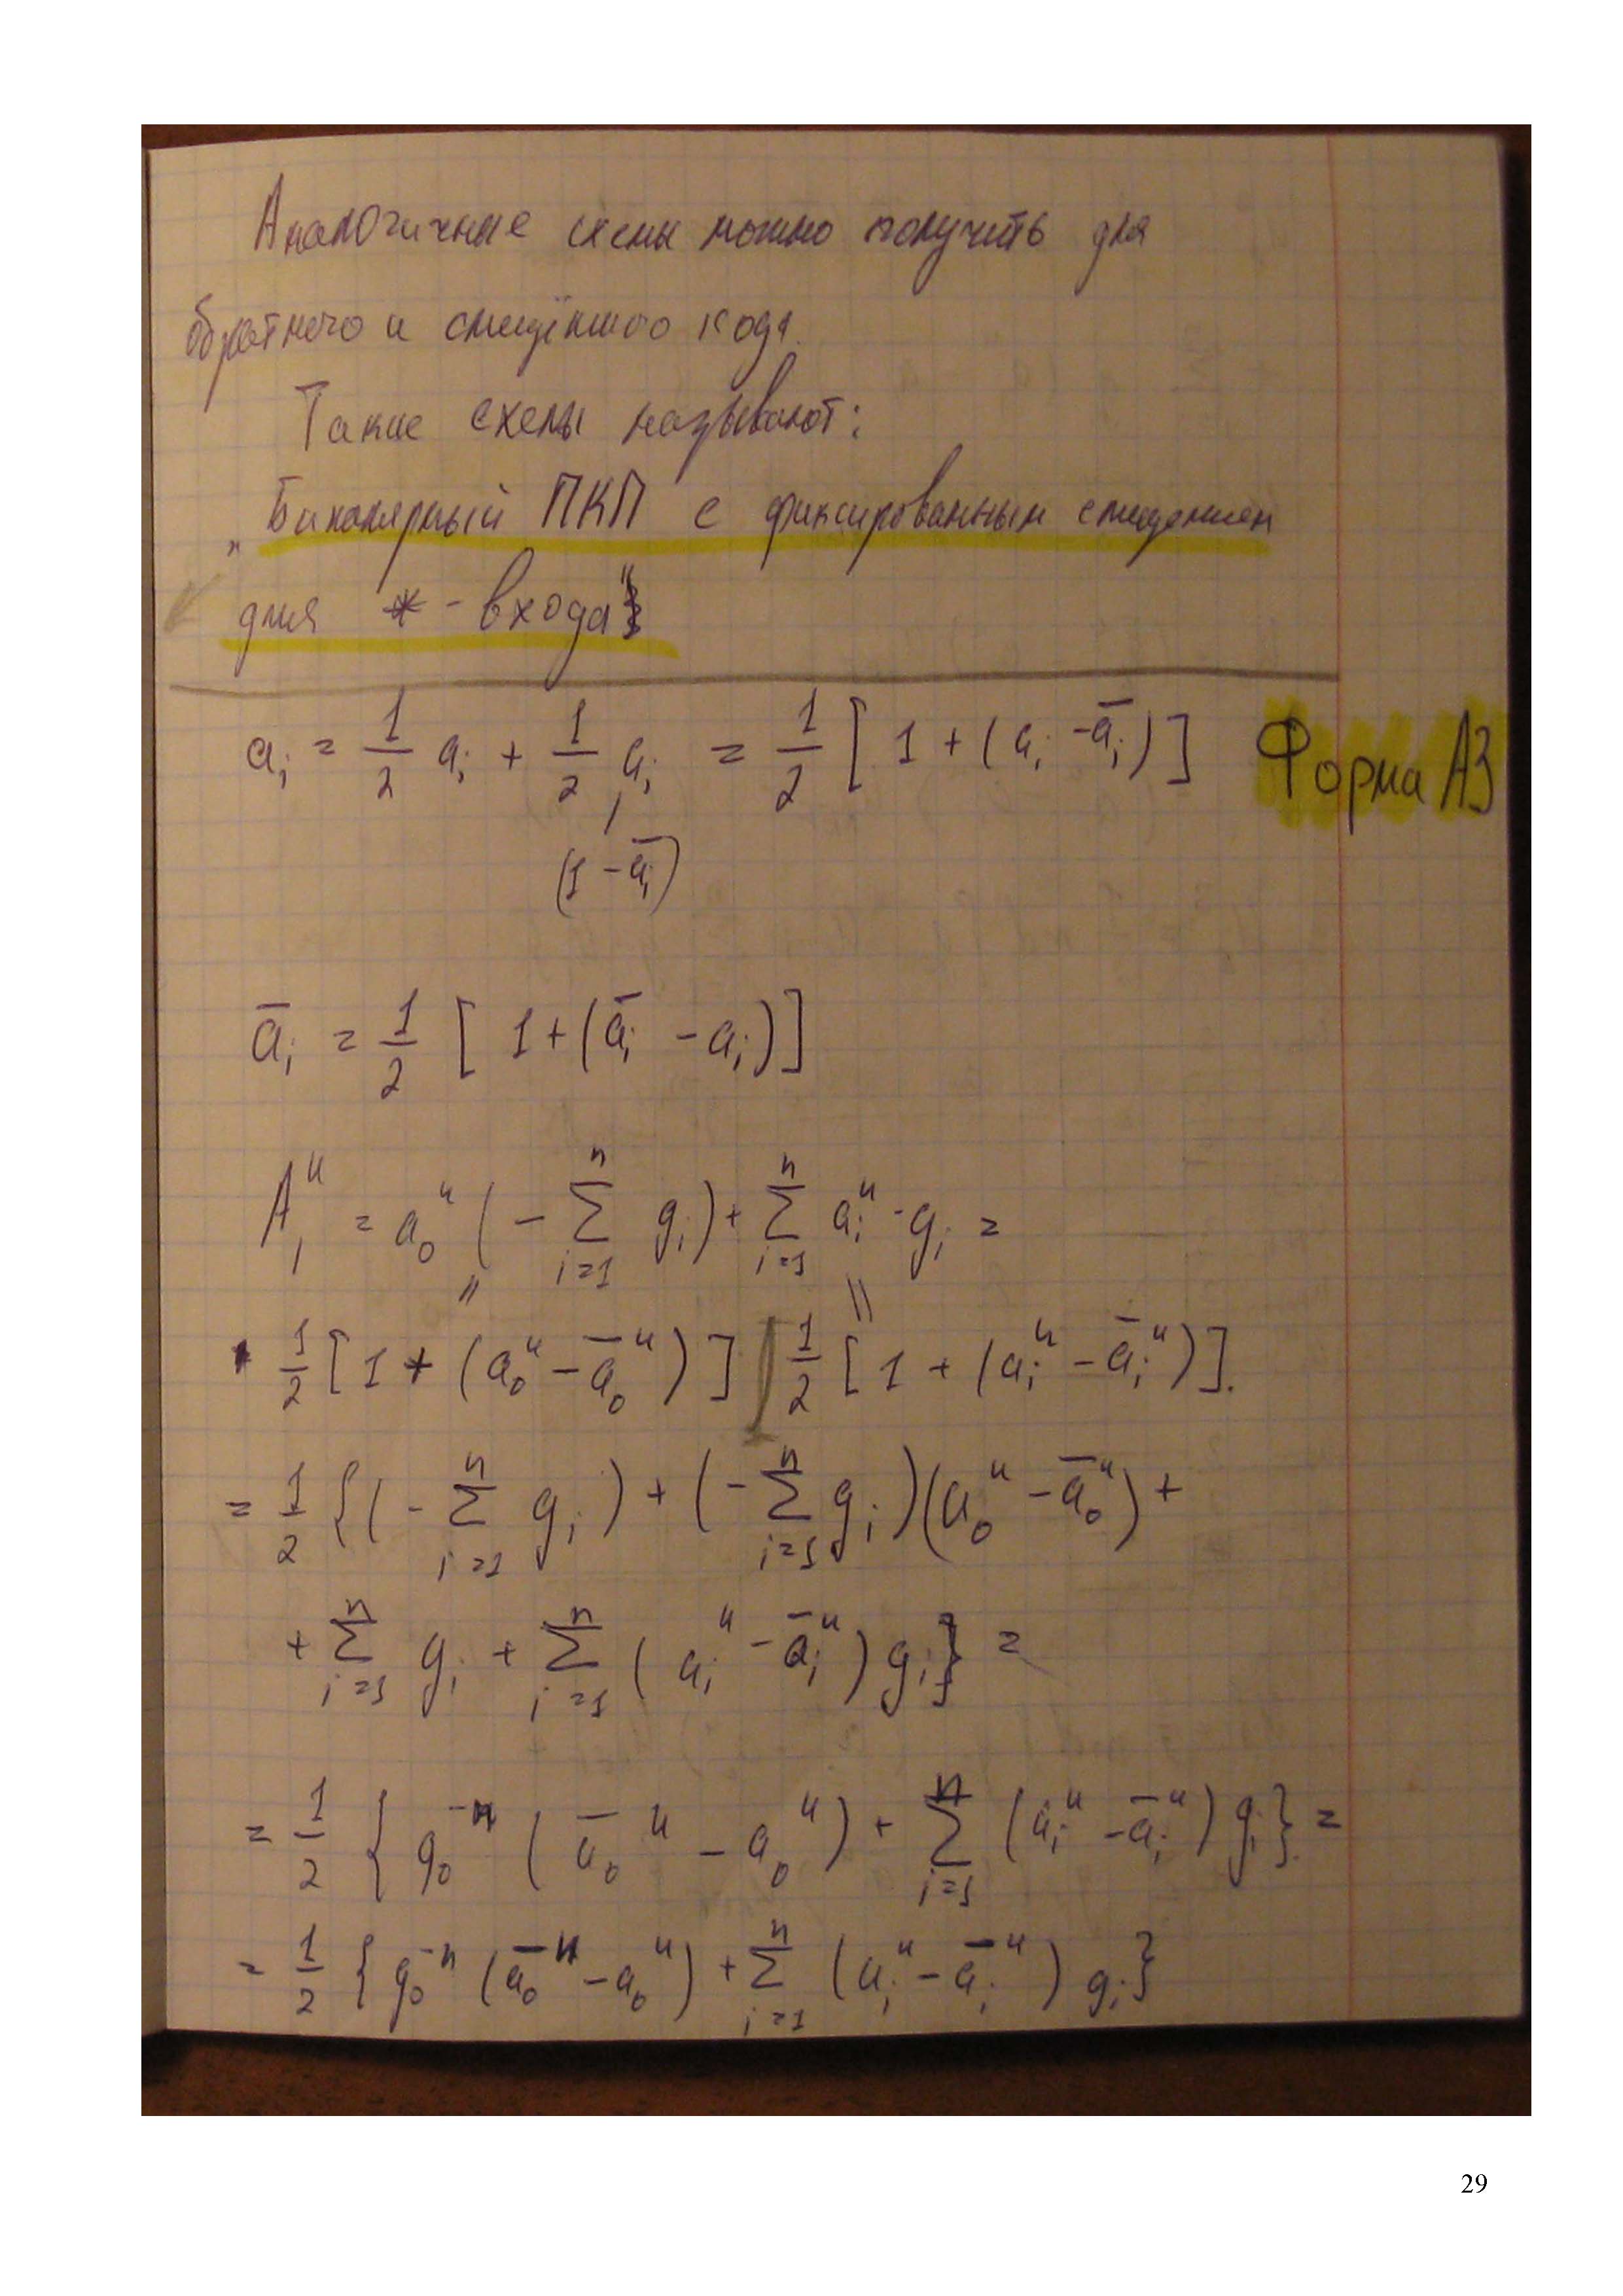 Аналогичные схемы можно получить для
обратного и смещённого кода.
Такие схемы называют:
„Биполярный ПКП с фиксированным смещением
для * - входа"
a_i = 1/2 a_i + 1/2 a_i = 1/2 [1 + (a_i - ā_i)] Форма А3
(1 - ā_i)
ā_i = 1/2 [1 + (ā_i - a_i)]
A_1^и = a_0^и (- ∑_{i=1}^n g_i) + ∑_{i=1}^n a_i^и · g_i =
1/2 [1 + (a_0^и - ā_0^и)] 1/2 [1 + (a_i^и - ā_i^и)].
= 1/2 {(- ∑_{i=1}^n g_i) + (- ∑_{i=1}^n g_i)(a_0^и - ā_0^и) +
+ ∑_{i=1}^n g_i + ∑_{i=1}^n (a_i^и - ā_i^и) g_i} =
= 1/2 {g_0^{-и} (ā_0^и - a_0^и) + ∑_{i=1}^n (a_i^и - ā_i^и) g_i} =
= 1/2 {g_0^{-и} (ā_0^и - a_0^и) + ∑_{i=1}^n (a_i^и - ā_i^и) g_i}
29